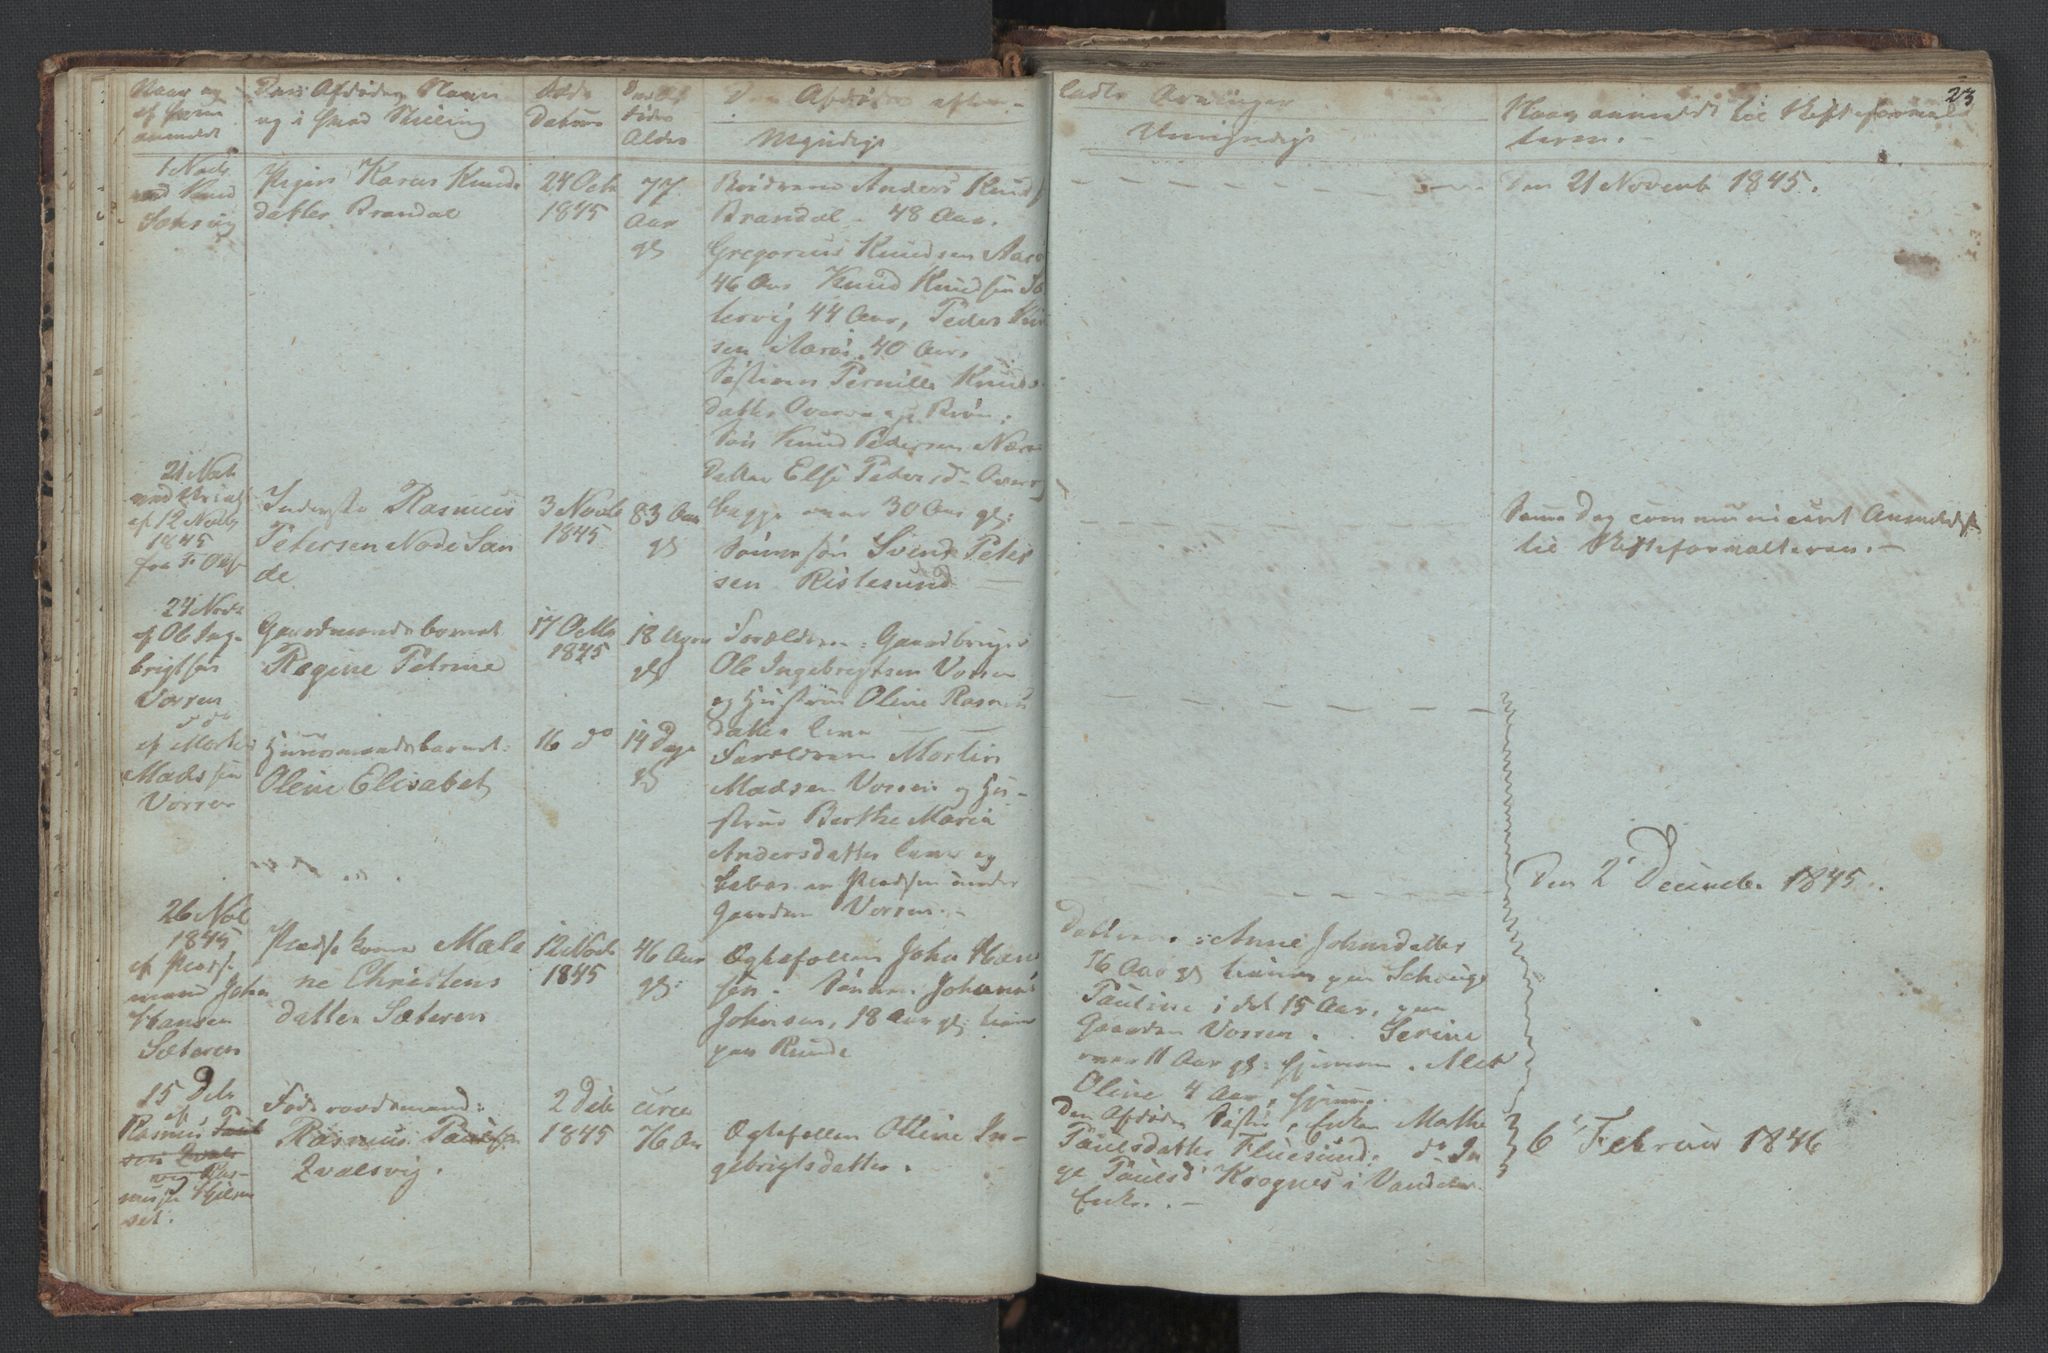 Naar og
af hvem
anmeldt
Den Afdødes Navn
og i hvad Stilling
Døds
Datum
Alder
Den Afdødes efter-
Myndige
ladte Arvinger
Umyndige
Naar anmeldt til Skifteforvalt
teren.
23
1 Novb.
ved Knud
Pigen Karen Knuds
datter Brandal
24 Octb
1845
77
Aar
gl
Brødrene Anders Knuds
Brandal - 48 Aar.
Gregorius Knudsen
46 Aar Knud Knudsen
44 Aar, Peder
sen 40 Aar.
Søsteren Pernille Knuds
datter
Søn Knud Pedersen
Datter Else Pedersd
begge over 30 Aar gl:
Den 21 Novemb 1845.
21 Novb
af 12 Novb
1845
fra
Inderste Rasmus
Petersen Node San
de
3 Novb
1845
83 Aar
gl
Sønnesøn Svend Peter
sen Ristesund
Samme Dag communiceret Anmeldelse
til Skifteforvalteren.-
24 Novb
af Ole Ing-
brigtsen
Vorren
Gaardmandsbarnet
Regine Petrine
17 Octbr
1845
18 Uger
gl
Forældrene: Gaardbruger
Ole Ingebrigtsen Vorren
og Hustrue Oline Rasmus
datter leve
do
af Morten
Madssen
Vorren
Huusmandsbarnet:
Oline Elisabet
16 do
14 Dage
gl
Forældrene Mortin
Madsen Vorren og Hu-
strue Berthe Maria
Andersdatter lever og
beboer en Pladsen under
Gaarden Vorren.-
Den 2 Decembr 1845.
26 Nob
1845
af Plads
mand John
Hansen
Sæteren
Pladskone Male
ne Christens
datter Sæteren
12 Novb
1845
46 Aar
gl:
Ægtefællen John Han
sen. Sønnen Johannes
Johnsen, 18 Aar gl tiener
paa Runde
Døtrene: Anne Johnsdatter
16 Aar gl tiener paa
Pauline i det 15 Aar, paa
Gaarden Vorren. Serine
over 11 Aar gl: hjemme. Alet
Oline 4 Aar, hjemme.
15 Debr
af
Rasmus
Føderaadsmand:
Rasmus Paulsen
Zvalsvig.
2 Debr
1845
circa
76 Aar
Ægtefællen Oline In-
gebrigtsdatter.
Den Afdødes Søster, Enken Marthe
Paulsdatter Fluesund. do In
ge Paulsd Krognes i Vandelv
Enke. -
6 Februar 1846